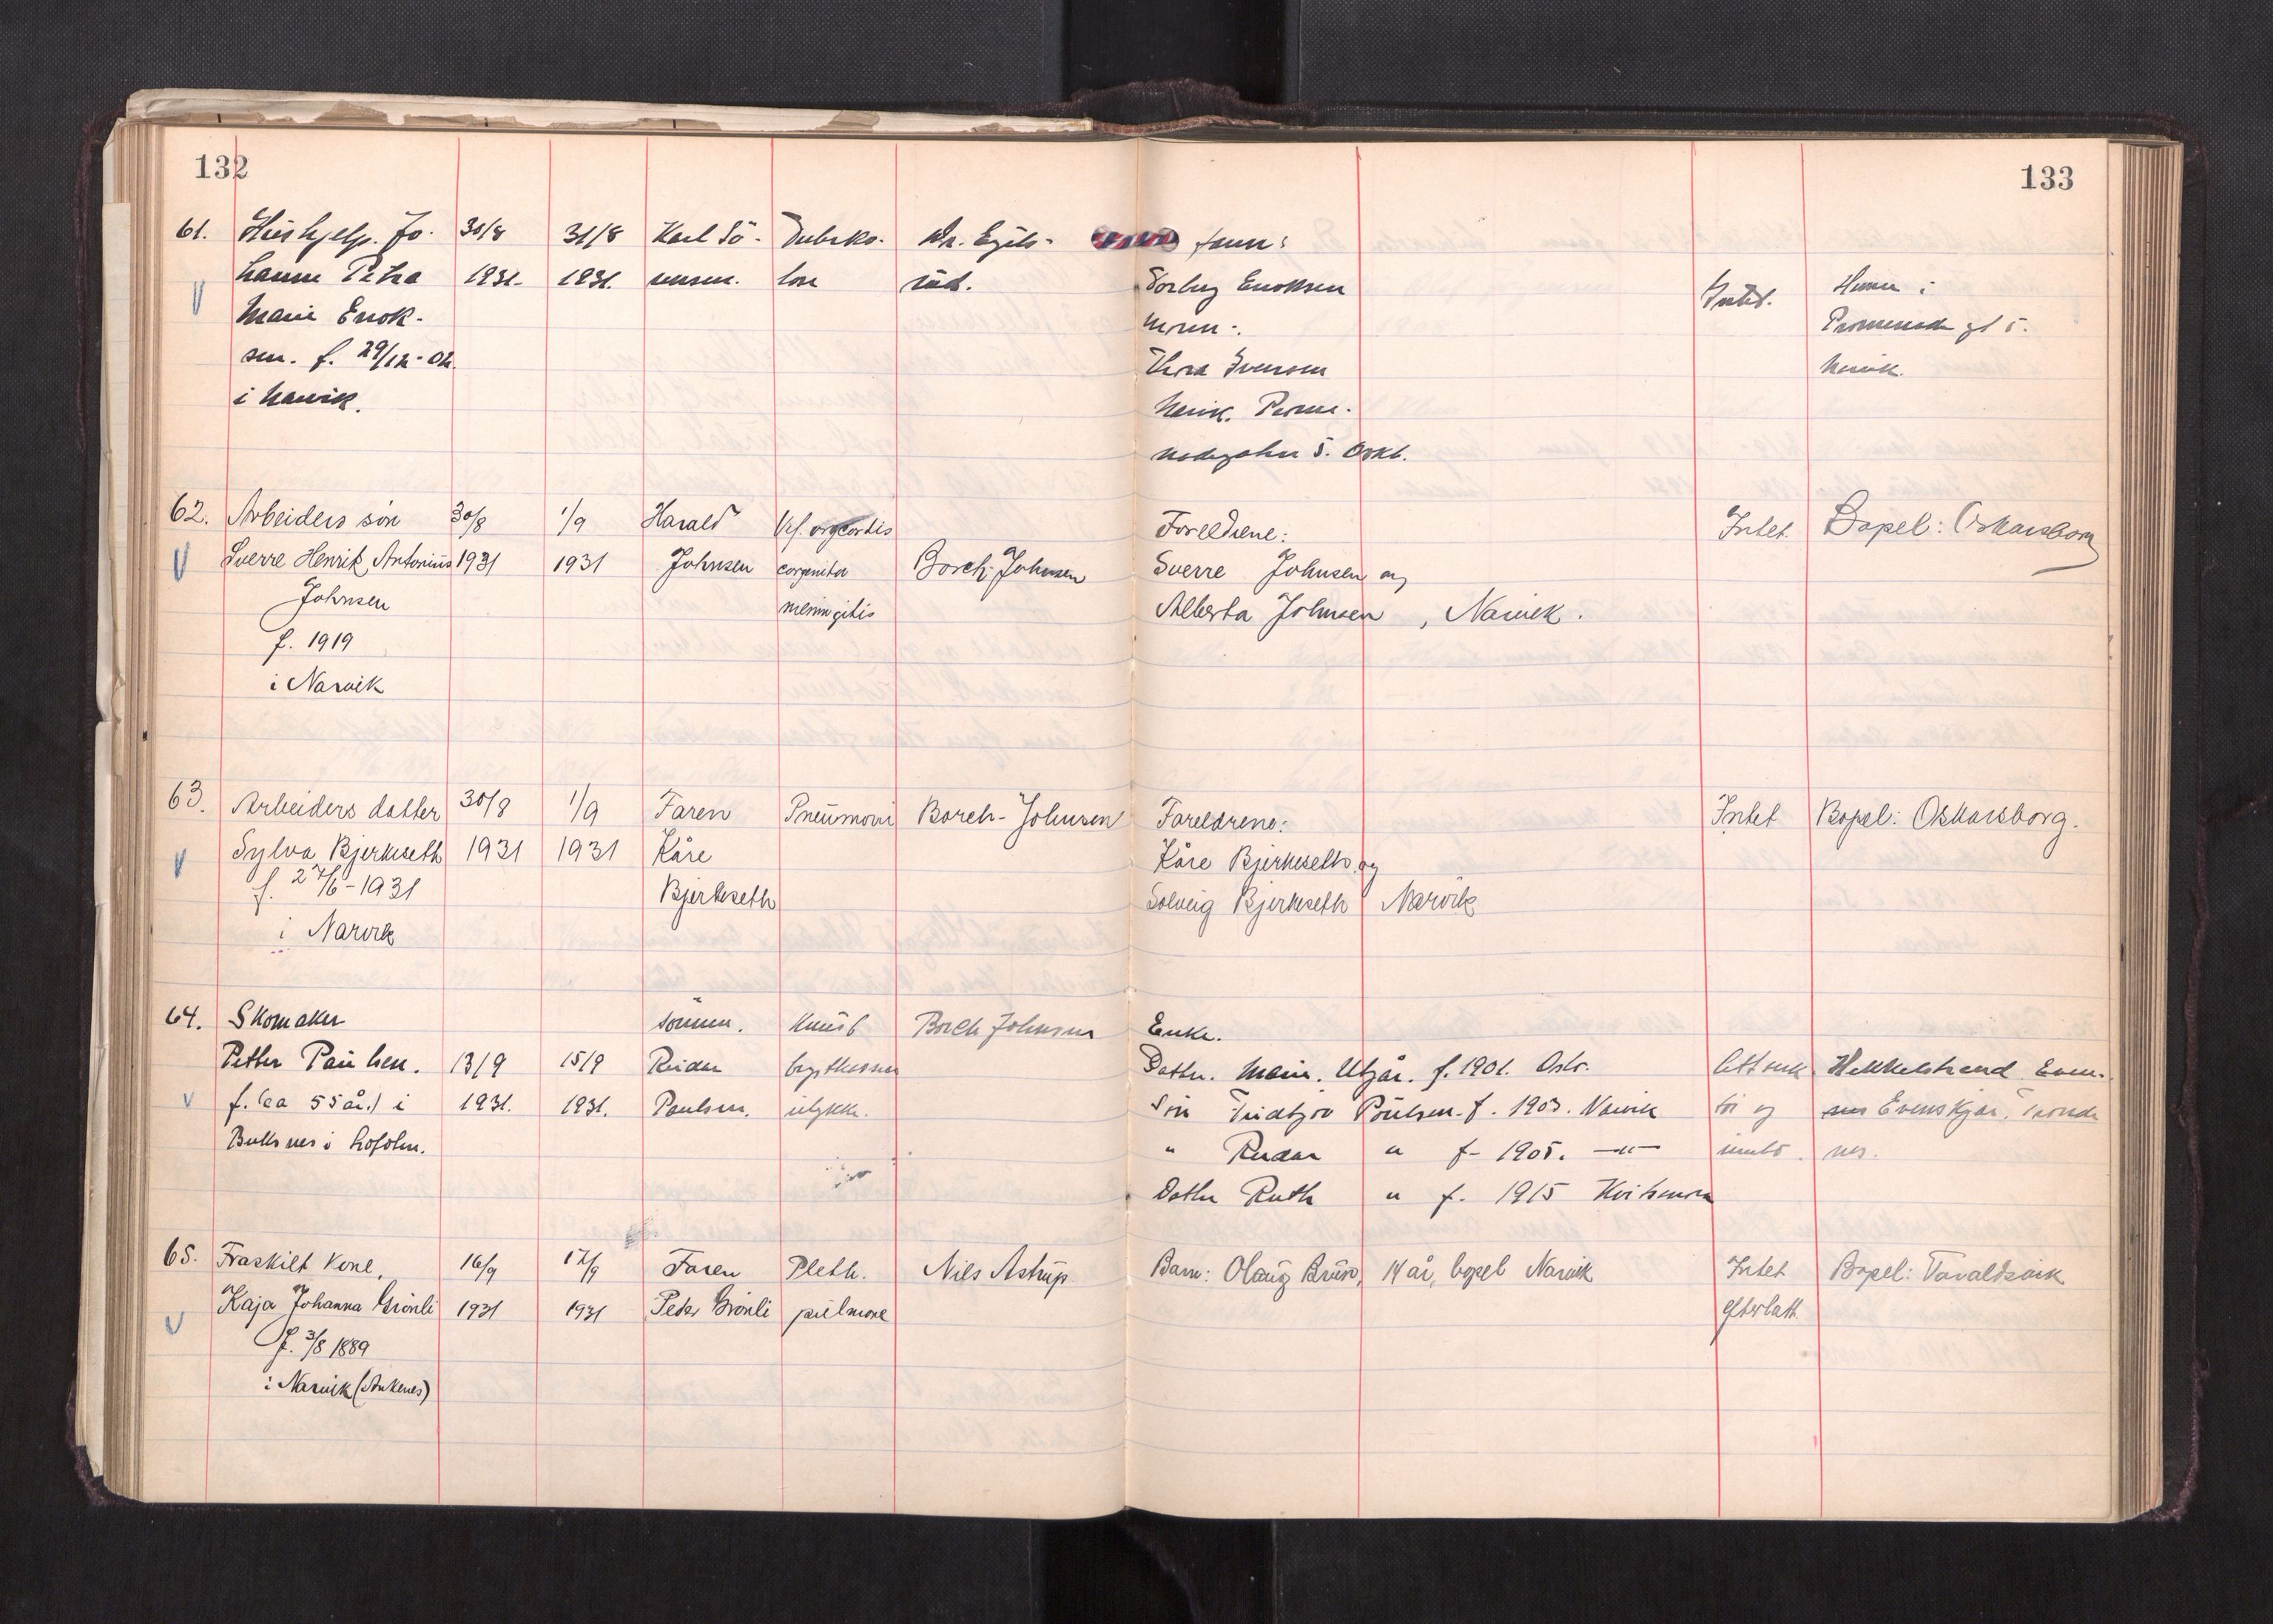 132
133
61. Hushjelp. Jo- 30/8 31/8 Karl Sö- Tuberko- Dr. Egils- faren:
hanne Petra 1931. 1931. rensen. lose rud. Torberg Enoksen Intet. Hun i
Marie Enok- Moren: Promenade gt 5.
sen. f. 29/12-02. Thora Svenson Narvik.
i Narvik. Narvik. Prome-
nadegaten 5. Oskb.
62. Arbeiders søn 30/8 1/9 Harald Vit. org cordis Foreldrene: Intet. Bopel: Oskarsborg
Sverre Henrik Antonius 1931 1931 Johnsen congenita Borch-Johnsen Sverre Johnsen og
Johnsen meningitis Alberta Johnsen, Narvik.
f. 1919
i Narvik
63. Arbeiders datter 30/8 1/9 Faren Pneumoni Borch-Johnsen Foreldrene: Intet Bopel: Oskarsborg.
Sylva Bjerkseth 1931 1931 Kåre Kåre Bjerkseth og
f. 27/6-1931 Bjerkseth Solveig Bjerkseth Narvik
i Narvik
64. Skomaker sønnen. Knust Borch Johnsen Enke.
Petter Paulsen. 13/9 15/9 Reidar brystkasse Datter. Marie. Utgår. f. 1901. Oslo. Hekkelstrand Even-
f. (ca 55 år.) i 1931. 1931. Paulsen. ulykke. Søn Poulsen f. 1903. Narvik bo og Evenskjær, Tronde
Buksnes i Lofoten. " Reidar " f- 1905. —"— nes.
Datter Ruth " f. 1915
65. Fraskilt kone, 16/9 17/9 Faren Pleth. Nils Astrup Barn: Olaug Bruso, 14 år, bopel Narvik Intet Bopel: Taraldsvik
Kaja Johanna Grönli 1931 1931 Peder Grönli pulmone efterlatt.
f. 3/8 1889
i Narvik (Ankenes)